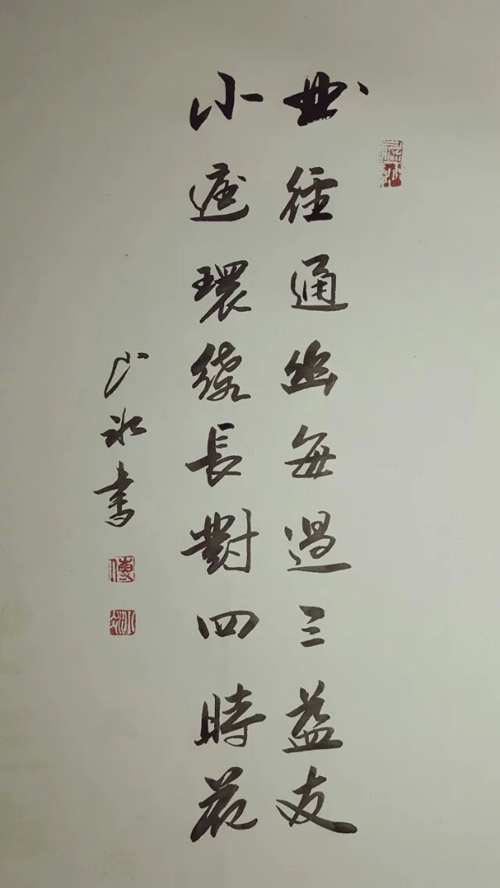 曲徑通幽每過三益友
小庭環繞長對四時花
冰書
傅